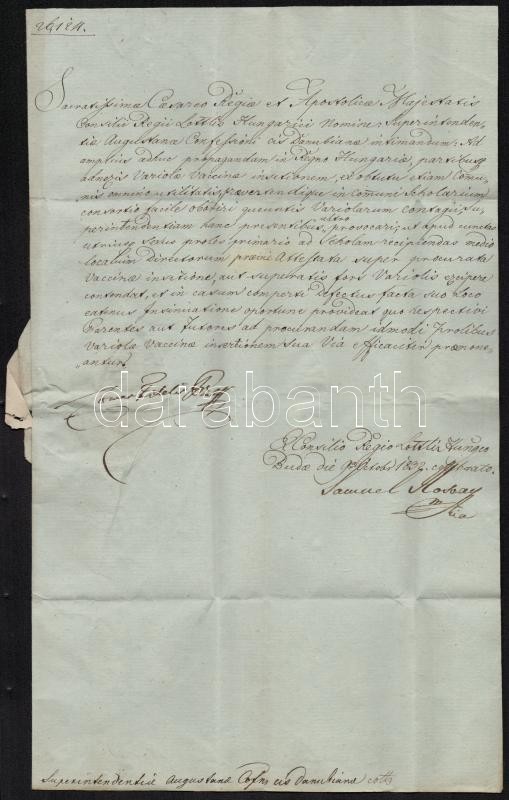 Sacratissimæ Cæsareo Regiæ et Apostolicæ Majestatis
Consilii Regii Lottlis Hungarici Nomine: Superintenden-
tiæ Augustanæ Confessioni cis Danubianæ intimandum: Ad
amplius adhuc propagandam in Regno Hungariæ, partibusq
adnexis Variolæ Vaccinæ insitionem, et obtutu etiam Commu-
nis omnino utilitatis, prævertendique in Comuni Scholarium
consortio facile oboriri queuntis Variolarum contagii, Su-
perintendentiam hanc presentibus, ultro provocari, ut apud cunctas
utriusq Sexus proles primario ad Scholam recipiendas medio
localium directorum prævie Attestata super procurata
Vaccinæ insitione, aut superatis fors Variolis excipere
contendat, et in casum comperti defectus facta suo loco
eatenus Insinuatione oportune provideat quo respectivi
Parentes aut Tutores ad procurandam idmodi Prolibus
Variolæ Vaccinæ insertionem Sua Via efficaciter præmone-
antur.
E Consilio Regio Lottli Hungco
Budæ die 1832. celebrato.
Samuel
Superintendentiæ Augustanæ Cofnis cis Danubianæ
darabanth